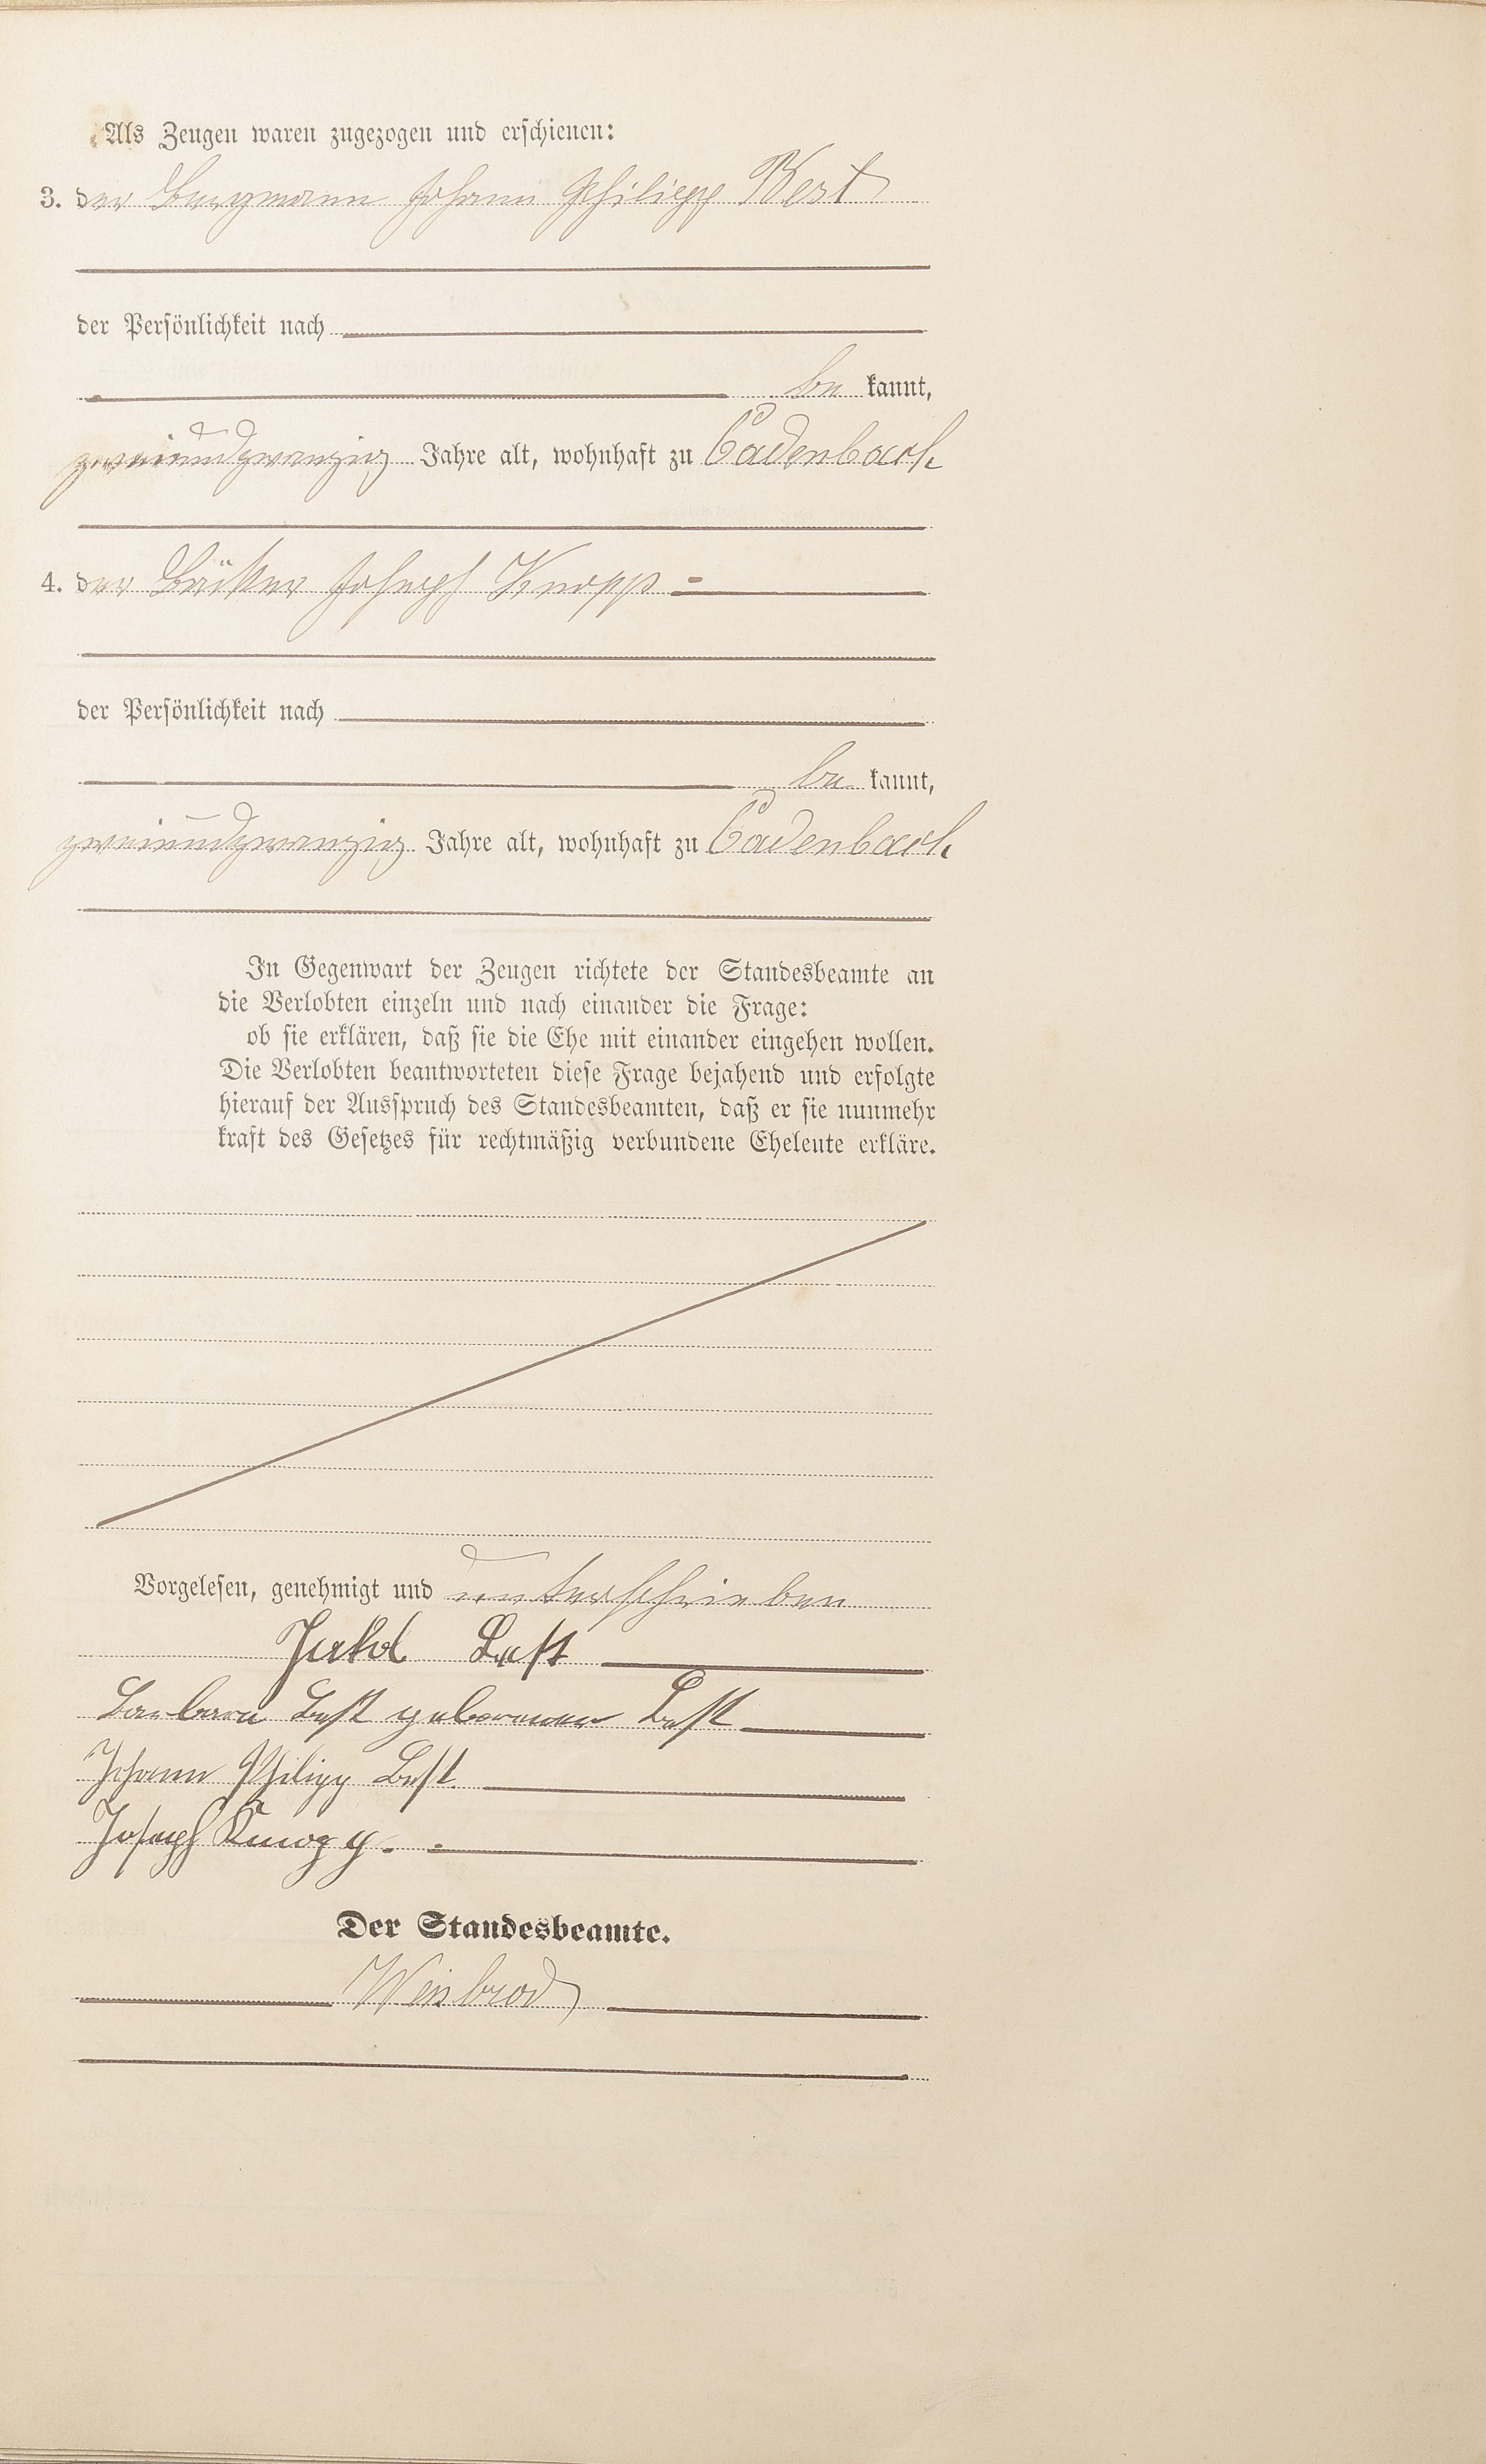 Als Zeugen waren zugezogen und erschienen:
3. der Bergmann Johann Philipp Best
der Persönlichkeit nach
be kannt,
zweiundzwanzig Jahre alt, wohnhaft zu Cadenbach
4. der Bäcker Joseph Knopp
der Persönlichkeit nach
be kannt,
zweiundzwanzig Jahre alt, wohnhaft zu Cadenbach
In Gegenwart der Zeugen richtete der Standesbeamte an
die Verlobten einzeln und nach einander die Frage:
ob sie erklären, daß sie die Ehe mit einander eingehen wollen.
Die Verlobten beantworteten diese Frage bejahend und erfolgte
hierauf der Ausspruch des Standesbeamten, daß er sie nunmehr
kraft des Gesetzes für rechtmäßig verbundene Eheleute erkläre.
Vorgelesen, genehmigt und unterschrieben
Jakob Best
Barbara Best geborenen Best
Johann Philipp Best
Joseph Knopp.
Der Standesbeamte.
Weisbrod